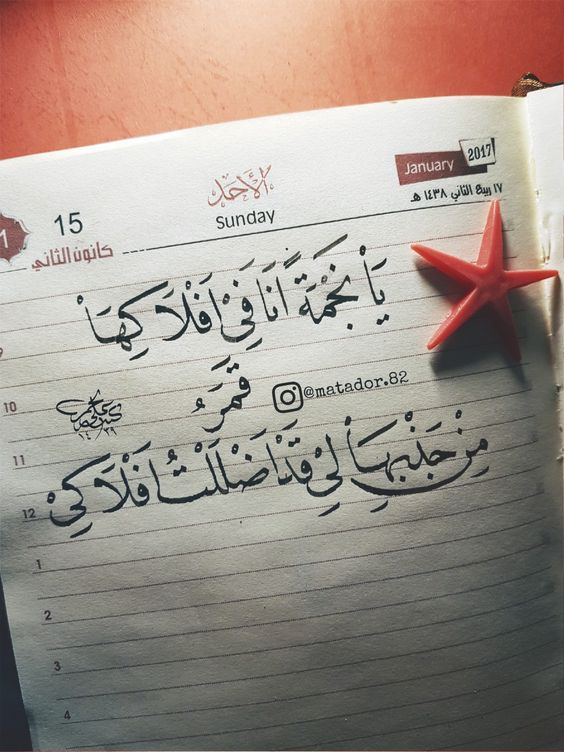 January 2017
١٧ ربيع الثاني ١٤٣٨ هـ
الأحد
Sunday
15
كانون الثاني
1
يَاْ نَجْمَةً أَنَا فِيْ أَفْلَاكِهَاْ
قَمَرُ
@matador.82
مِنْ جَذْبِهَاْ لِيْ قَدْ أَضْلَلْتُ أَفْلَاكِيْ
9
10
11
12
1
2
3
4